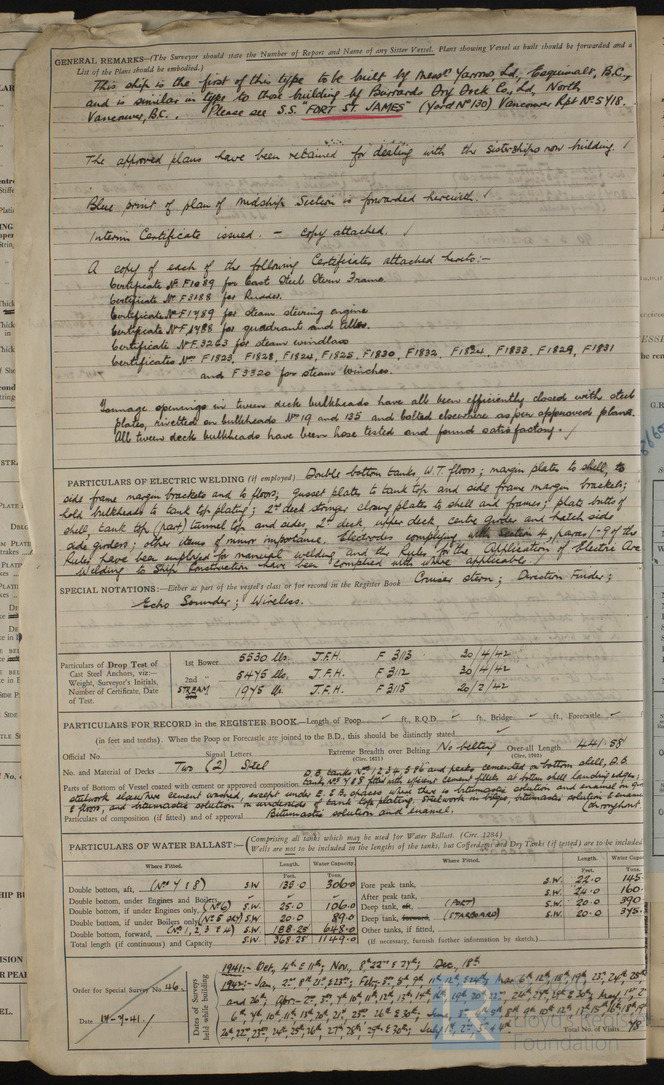 GENERAL REMARKS—(The Surveyor should state the Number of Report and Name of any Sister Vessel. Plans showing Vessel as built should be forwarded and a
List of the Plans should be embodied.)
This ship is the first of this type to be built by Messrs Yarrows, Ld, Esquimalt, B.C.,
and is similar in type to those building by Burrards Dry Dock Co, Ld, North
Vancouver, B.C. Please see S.S. "FORT ST. JAMES" (Yard No 130) Vancouver Rpt No. 5418.
The approved plans have been retained for dealing with the sisterships now building.
Blue print of plan of midship section is forwarded herewith.
Interim Certificate issued. – Copy attached.
A copy of each of the following Certificates attached hereto:-
Certificate No F1089 for Cast Steel Stern Frame.
Certificate No F3188 for Rudder.
Certificate No F1489 for steam steering engine
Certificate No F1488 for quadrant and tiller.
Certificate No F3263 for steam windlass
Certificates Nos F1823, F1828, F1824, F1825, F1830, F1832, F1833, F1829, F1831
and F3320 for steam winches.
Tonnage openings in tween deck bulkheads have all been efficiently closed with steel
plates, rivetted on bulkheads Nos 19 and 135 and bolted elsewhere as per approved plans.
All tween deck bulkheads have been hose tested and found satisfactory.
PARTICULARS OF ELECTRIC WELDING (if employed) Double bottom tanks, W.T. floors; margin plates to shell, to
side frame margin brackets and to floors; gusset plates to tank top and side frame margin brackets;
hold bulkheads to tank top plating; 2nd deck stringer closing plates to shell and frames; plate butts of
shell, tank top, (part) tunnel top and sides, 2nd deck, upper deck, centre girder and hatch side
side girders; other items of minor importance. Electrodes complying with Section 4, paras 1-9 of the
Rules have been employed for manual welding and the Rules for the Application of Electric Arc
Welding to Ship Construction have been complied with where applicable.
SPECIAL NOTATIONS:—Either as part of the vessel's class or for record in the Register Book Cruiser stern; Direction Finder;
Echo Sounder; Wireless.
Particulars of Drop Test of
Cast Steel Anchors, viz:—
Weight, Surveyor's Initials,
Number of Certificate, Date
of Test.
1st Bower 5530 lbs. J.F.H. F 3113 30/4/42
2nd " 5475 lbs. J.F.H. F 3112 30/4/42
STREAM 1975 lbs. J.F.H. F 3115 20/2/42
PARTICULARS FOR RECORD in the REGISTER BOOK.—Length of Poop ft., R.Q.D. ft., Bridge ft., Forecastle ft.
(in feet and tenths). When the Poop or Forecastle are joined to the B.D., this should be distinctly stated
Official No. Signal Letters Extreme Breadth over Belting No belting Over-all Length 441.58
(Circ. 1611) (Circ. 1703)
No. and Material of Decks Two (2) Steel
Parts of Bottom of Vessel coated with cement or approved composition
D.B. tanks Nos 1, 2, 3, 4, 5 & 6 and peaks cemented on bottom shell, D.B.
tanks Nos 7 & 8 fitted with efficient cement fillets at bottom shell landing edges;
steelwork elsewhere cement washed, except under E. & B. spaces where there is bitumastic solution and enamel on
& floors, and bitumastic solution on underside of tank top plating. Steelwork in bilges, bitumastic solution & enamel
throughout
Particulars of composition (if fitted) and of approval Bitumastic solution and enamel.
PARTICULARS OF WATER BALLAST:—
(Comprising all tanks which may be used for Water Ballast. (Circ. 1284)
Wells are not to be included in the lengths of the tanks, but Cofferdams and Dry Tanks (if tested) are to be included
Where Fitted. Length. Water Capacity.
Feet. Tons.
Double bottom, aft, (Nos 7 & 8) S.W. 135.0 306.0
Double bottom, under Engines and Boilers
Double bottom, if under Engines only, (No 6) S.W. 25.0 106.0
Double bottom, if under Boilers only, S.W. 20.0 89.0
Double bottom, forward, (Nos 1, 2, 3 & 4) S.W. 188.25 648.0
Total length (if continuous) and Capacity S.W. 368.25 1149.0
Where Fitted. Length. Water Capac
Feet. Tons.
Fore peak tank, S.W. 22.0 145
After peak tank, S.W. 24.0 160
Deep tank, aft, (PORT) S.W. 20.0 390
Deep tank, forward, (STARBOARD) S.W. 20.0 375
Other tanks, if fitted,
(If necessary, furnish further information by sketch.)
Order for Special Survey No. 46.
Date 17-9-41.
Dates of Surveys
held while building
1941:- Oct, 4th & 11th; Nov, 8th 22nd & 27th; Dec, 18th
Total No. of Visits 78
Lloyd's Register
Foundation